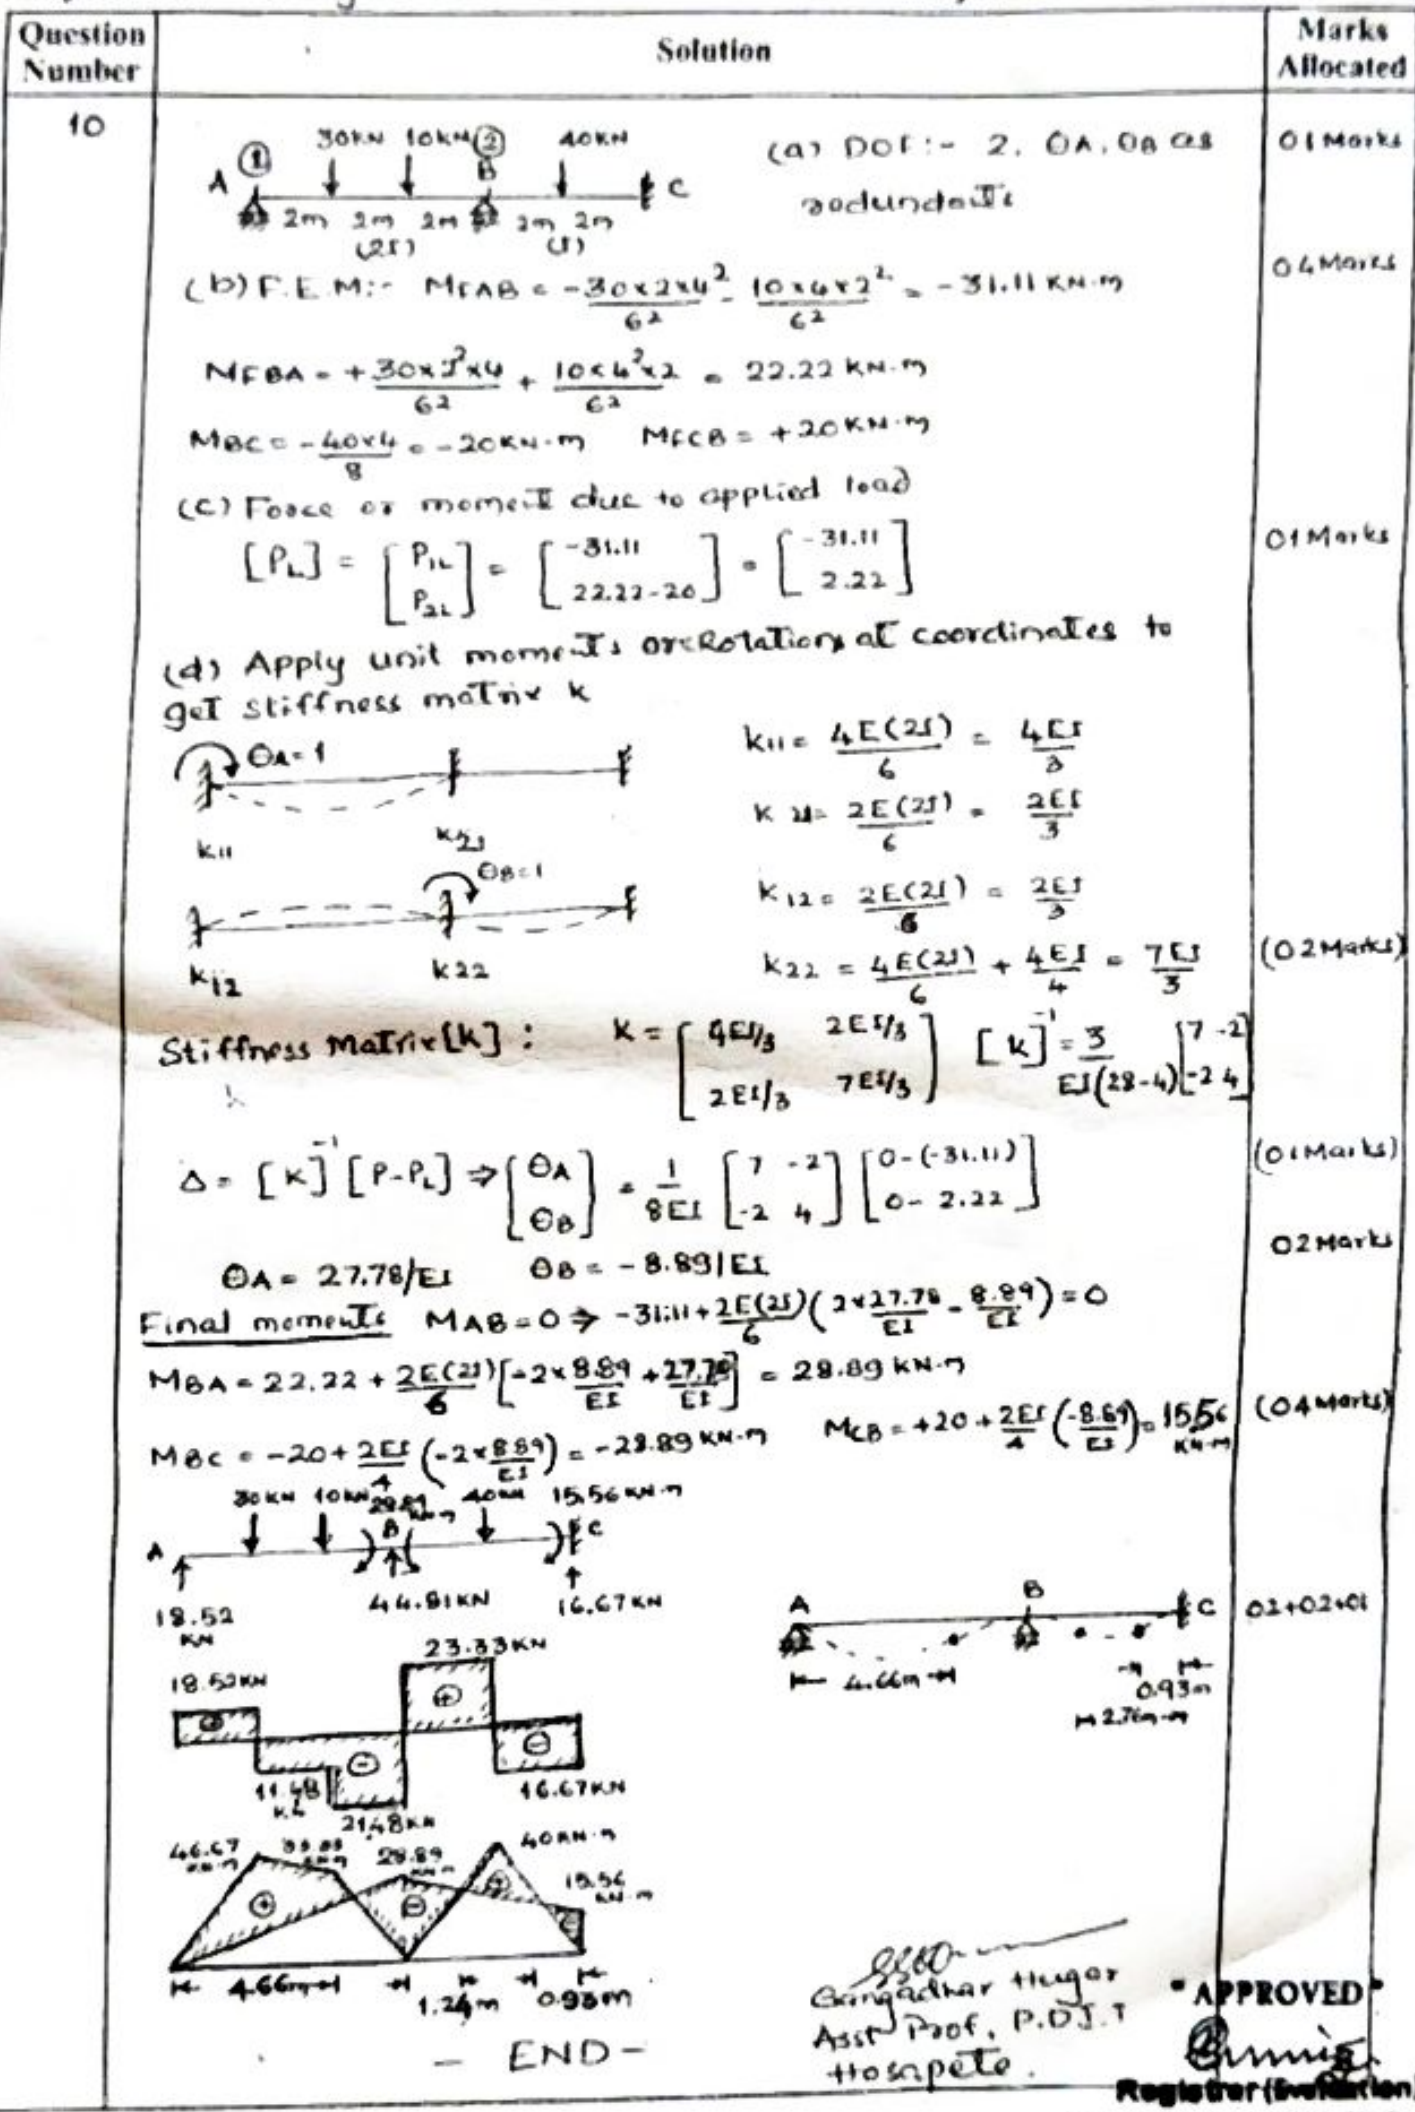 Question Number
Solution
Marks Allocated
10
A ① 30KN 10KN ② B 40KN C
2m 2m 2m 2m 2m
(2I) (I)
(a) DOF:- 2. θA, θB as
01 Marks
redundants
(b) F.E.M:- MFAB = -30×2×4²/6² - 10×4×2²/6² = -31.11 KN.m
04 Marks
MFBA = +30×2²×4/6² + 10×4²×2/6² = 22.22 KN.m
MBC = -40×4/8 = -20KN.m MFCB = +20KN.m
(C) Force or moment due to applied load
[PL] = [P1L P2L] = [-31.11 22.22-20] = [-31.11 2.22]
01 Marks
(d) Apply unit moments or Rotations at coordinates to
get stiffness matrix k
θA=1
k11 k21
k11 = 4E(2I)/6 = 4EI/3
k 21= 2E(2I)/6 = 2EI/3
θB=1
k12 k22
k12 = 2E(2I)/6 = 2EI/3
k22 = 4E(2I)/6 + 4EI/4 = 7EI/3
(02 Marks)
Stiffness Matrix [k] : k = [4EI/3 2EI/3 2EI/3 7EI/3] [k]⁻¹ = 3/EI(28-4) [7 -2 -2 4]
Δ = [k]⁻¹ [P-PL] ⇒ [θA θB] = 1/8EI [7 -2 -2 4] [0-(-31.11) 0-2.22]
(01 Marks)
θA = 27.78/EI θB = -8.89/EI
02 Marks
Final moments MAB=0 ⇒ -31.11+2E(2I)/6 (2×27.78/EI - 8.89/EI) = 0
MBA = 22.22 + 2E(2I)/6 [-2×8.89/EI + 27.78/EI] = 28.89 KN.m
MBC = -20+2EI/4 (-2×8.89/EI) = -28.89 KN.m MCB = +20+2EI/4 (-8.89/EI) = 15.56 KN.m
(04 Marks)
30KN 10KN 28.89 KN.m 40KN 15.56 KN.m
A B C
18.52 KN 44.81KN 16.67KN
A B C
02+02+01
4.66m 0.93m
2.76m
23.33KN
18.52KN
11.48
21.48KN
16.67KN
46.67 KN.m 28.89 KN.m 40KN.m
15.56 KN.m
4.66m 1.24m 0.93m
- END -
Gangadhar Hugar
Asst Prof, P.D.I.T
Hosapete.
"APPROVED"
Registrar (Evaluation)